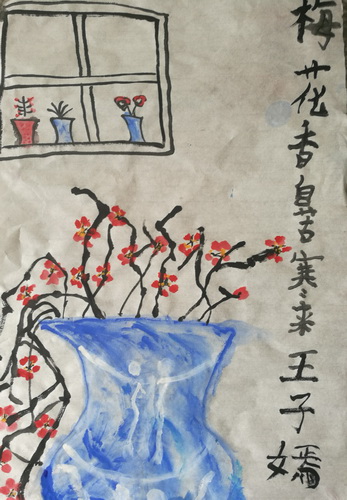 梅花香自苦寒来王子嫣